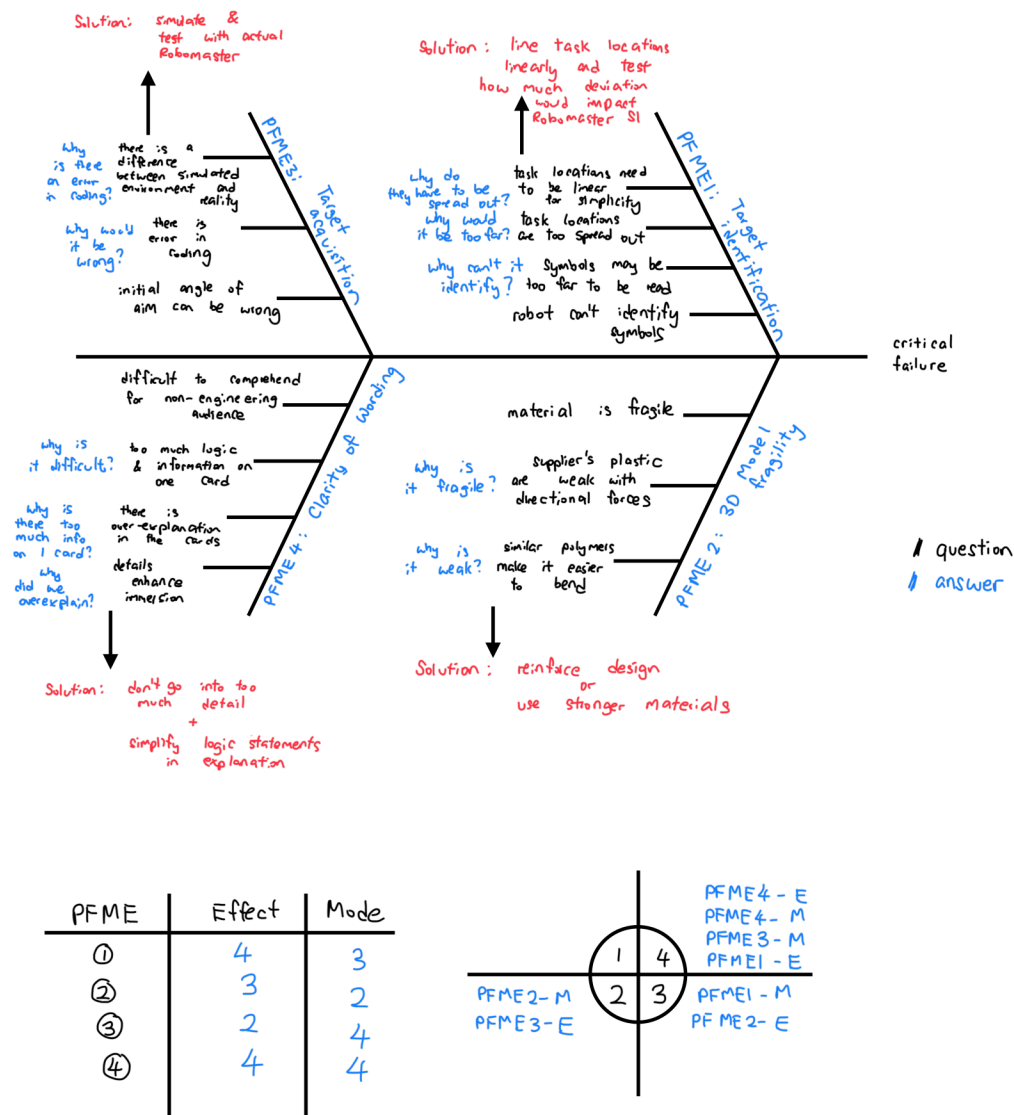 Solution: simulate &
test with actual
Robomaster
PFME3: Target
acquisition
why
is there
an error
in coding?
there is a
difference
between simulated
environment and
reality
why would
it be
wrong?
there is
error in
coding
initial angle of
aim can be wrong
Solution: line task locations
linearly and test
how much deviation
would impact
Robomaster S1
PFME1: Target
identification
why do
they have to be
spread out?
task locations need
to be linear
for simplicity
why would
it be too far?
task locations
are too spread out
why can't it
identify?
symbols may be
too far to be read
robot can't identify
symbols
critical
failure
difficult to comprehend
for non-engineering
audience
why is
it difficult?
too much logic
& information on
one card
why is
there too
much info
on 1 card?
there is
over-explanation
in the cards
why
did we
overexplain?
details
enhance
immersion
PFME 4: Clarity of Wording
Solution: don't go into too
much detail
+
simplify logic statements
in explanation
material is fragile
why is
it fragile?
supplier's plastic
are weak with
directional forces
why is
it weak?
similar polymers
make it easier
to bend
PFME 2: 3D Model
fragility
Solution: reinforce design
or
use stronger materials
question
answer
PFME Effect Mode
1 4 3
2 3 2
3 2 4
4 4 4
PFME4-E
PFME4-M
PFME3-M
PFME1-E
1 4
2 3
PFME2-M
PFME3-E
PFME1-M
PFME2-E